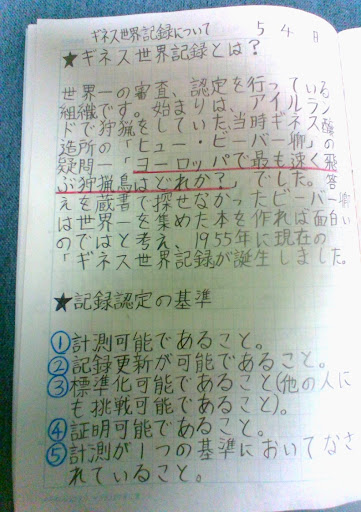 ギネス世界記録について 5 4 日
★ギネス世界記録とは?
世界一の審査、認定を行っている
組織です。始まりは、アイルラン
ドで狩猟をしていた当時ギネス醸
造所の「ヒュー・ビーバー卿」の
疑問―「ヨーロッパで最も速く飛
ぶ狩猟鳥はどれか?」でした。答
えを蔵書で探せなかったビーバー卿
は世界一を集めた本を作れば面白い
のではと考え、1955年に現在の
「ギネス世界記録が誕生しました。
★記録認定の基準
①計測可能であること。
②記録更新が可能であること。
③標準化可能であること(他の人に
も挑戦可能であること)。
④証明可能であること。
⑤計測が1つの基準においてなさ
れていること。